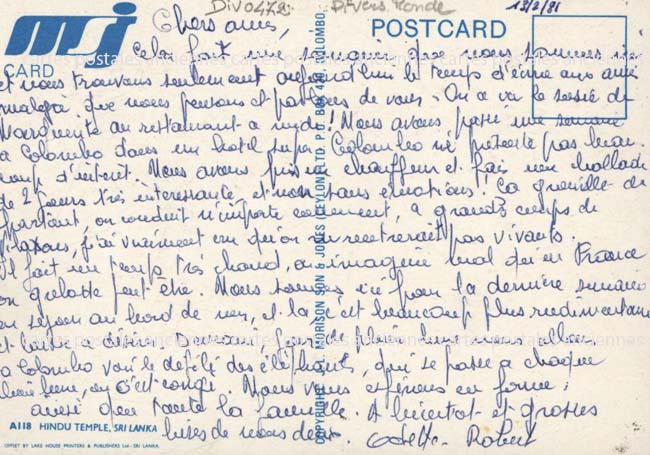 Div0472 Divers Monde 13/2/81
MSJ
CARD
POSTCARD
Chers amis,
Cela fait une semaine que nous sommes ici
et nous trouvons seulement aujourd'hui le temps d'écrire aux amis
malgré que nous pensons et parlons de vous. On a vu le sosie de
Marguerite au restaurant à midi! Nous avons passé une semaine
à Colombo dans un hotel super. Colombo ne présente pas beau
coup d'intérêt. Nous avons pris un chauffeur et fais une ballade
de 2 jours très intéressante, et non sans émotions! Ça grouille de
partout, on conduit n'importe comment, à grands coups de
Klaxons, j'ai vraiment cru qu'on ne rentrerait pas vivants.
Il fait un temps très chaud, on imagine mal qu'en France
on grelotte peut être. Nous sommes ici pour la dernière semaine
en séjour au bord de mer, et là c'est beaucoup plus rudimentaire
et Demain, jour de pleine lune, nous allons
à Colombo voir le défilé des éléphants, qui se passe à chaque
pleine lune, ou c'est congé. Nous vous espérons en forme,
ainsi que toute la famille. A bientôt et grosses
bises de nous deux. Odette Robert
A118 HINDU TEMPLE, SRI LANKA
OFFSET BY LAKE HOUSE PRINTERS & PUBLISHERS Ltd - SRI LANKA.
COPYRIGHT: M.J. MORISON SON & JONES (CEYLON) LTD. P.O. BOX 430 COLOMBO
cartes postales anciennes